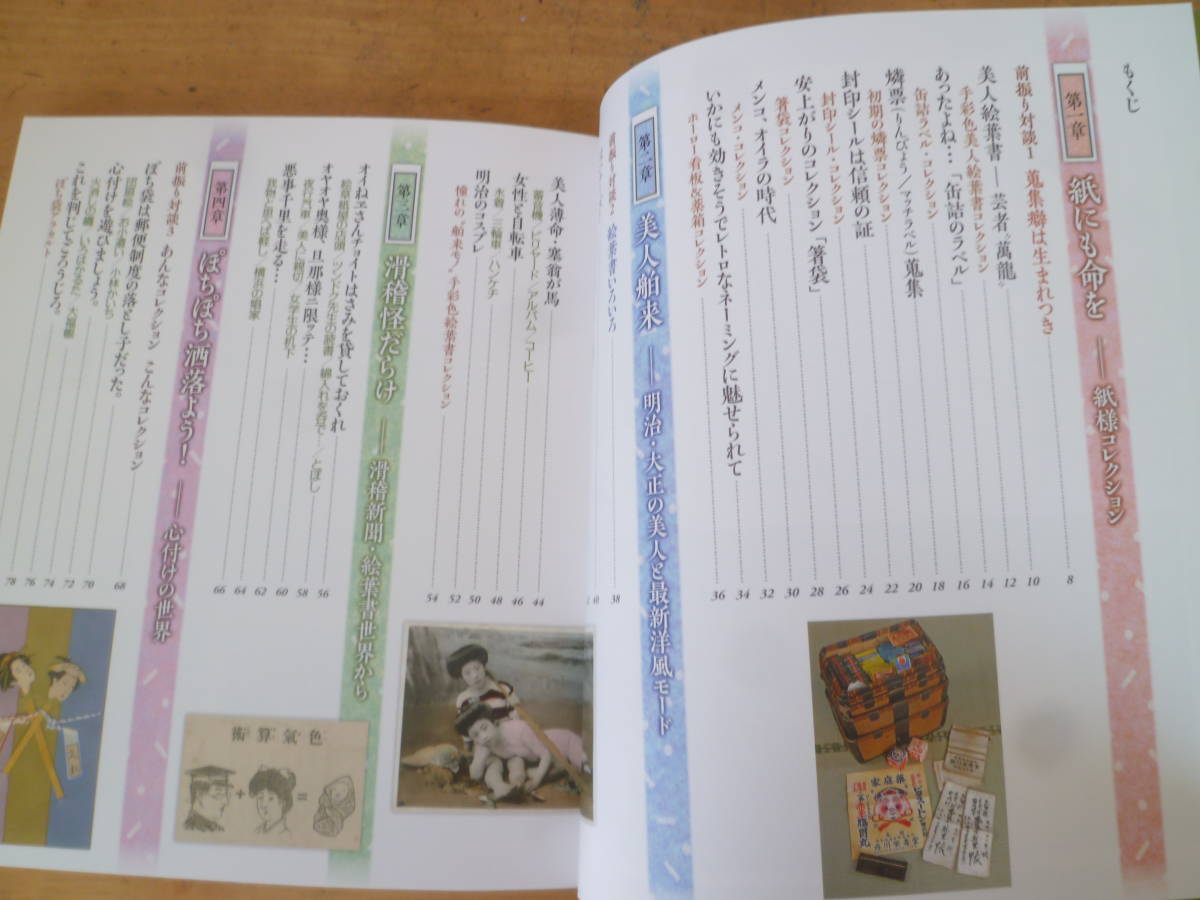 もくじ
第一章 紙にも命を ── 紙様コレクション
前振り対談1 蒐集癖は生まれつき 8
美人絵葉書 ── 芸者〝萬龍〟 10
手彩色美人絵葉書コレクション 12
あったよね…「缶詰のラベル」 14
缶詰ラベル・コレクション 16
燐票(りんぴょう／マッチラベル)蒐集 18
初期の燐票コレクション 20
封印シールは信頼の証 22
封印シール・コレクション 24
安上がりのコレクション「箸袋」 26
箸袋コレクション 28
メンコ、オイラの時代 30
メンコ・コレクション 32
いかにも効きそうでレトロなネーミングに魅せられて 34
ホーロー看板&薬箱コレクション 36
第二章 美人舶来 ── 明治・大正の美人と最新洋風モード
前振り対談2 絵葉書いろいろ 38
40
美人薄命・塞翁が馬 44
蓄音機／ビリヤード／アルバム／コーヒー
女性と自転車 46
水着／三輪車／ハンケチ 48
明治のコスプレ 50
憧れの「舶来モノ」手彩色絵葉書コレクション 52
54
第三章 滑稽怪だらけ ── 滑稽新聞・絵葉書世界から
オイねエさんチョイトはさみを貸しておくれ 56
オヤオヤ奥様、旦那様ニ限ッテ… 58
悪事千里を走る… 60
62
64
66
第四章 ぽちぽち洒落よう！ ── 心付けの世界
前振り対談3 あんなコレクション こんなコレクション
ぽち袋は郵便制度の落とし子だった。 68
心付けを遊びましょう。 70
72
これを判じてごろうじろ。 74
76
78
色氣算術
家庭薬